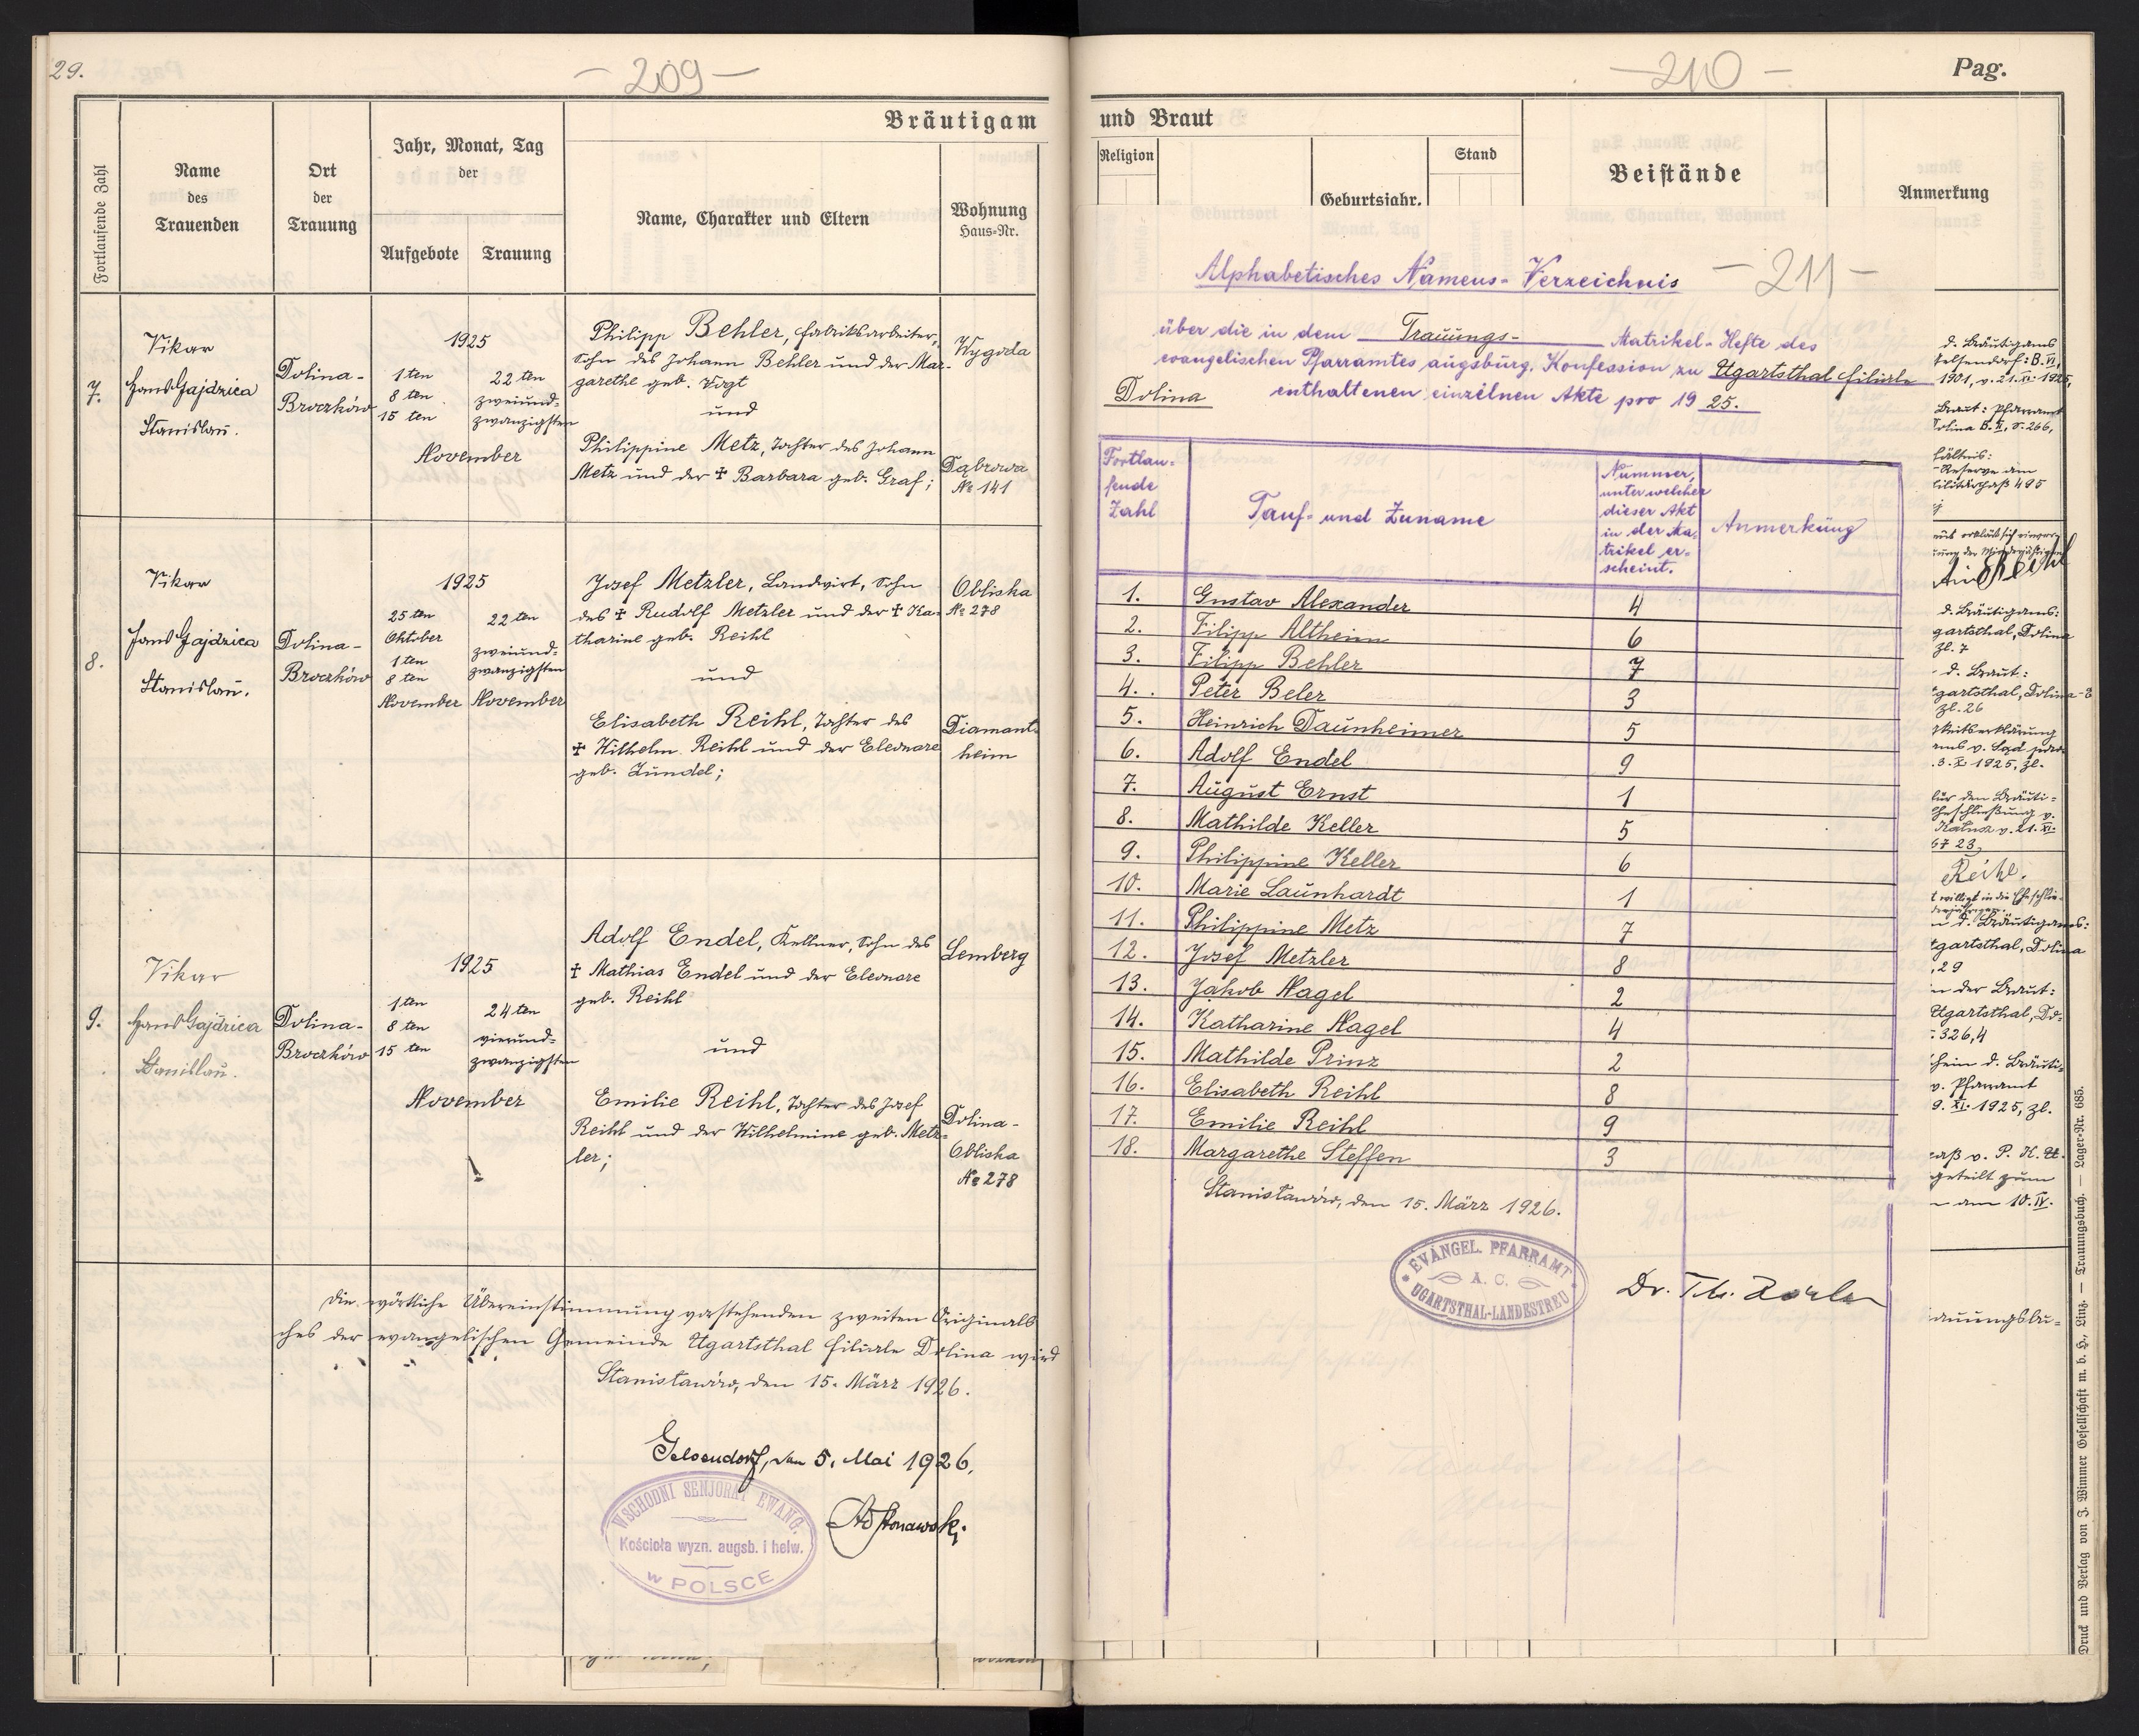 29.
– 209 –
Bräutigam
Fortlaufende Zahl
Name
des
Trauenden
Ort
der
Trauung
Jahr, Monat, Tag
der
Aufgebote
Trauung
Name, Charakter und Eltern
Wohnung
Haus-Nr.
7.
Vikar
Hans Gajdzica
Stanislau.
Dolina-
Broczków
1925
1 ten
8 ten
15 ten
22 ten
zweiund-
zwanzigsten
November
Philipp Behler, Fabriksarbeiter,
Sohn des Johann Behler und der Mar-
garethe geb. Vogt
und
Philippine Metz, Tochter des Johann
Metz und der ✝ Barbara geb. Graf;
Wygoda
Dąbrowa
No 141
8.
Vikar
Hans Gajdzica
Stanislau.
Dolina-
Broczków
1925
25 ten
Oktober
1 ten
8 ten
November
22 ten
zweiund-
zwanzigsten
November
Josef Metzler, Landwirt, Sohn
des ✝ Rudolf Metzler und der ✝ Ka-
tharine geb. Reihl
und
Elisabeth Reihl, Tochter des
✝ Wilhelm Reihl und der Eleonore
geb. Zundel;
Obliska
No 278
Diamant-
heim
9.
Vikar
Hans Gajdzica
Stanislau.
Dolina-
Broczków
1925
1 ten
8 ten
15 ten
24 ten
vierund-
zwanzigsten
November
Adolf Endel, Kellner, Sohn des
✝ Mathias Endel und der Eleonore
geb. Reihl
und
Emilie Reihl, Tochter des Josef
Reihl und der Wilhelmine geb. Metz-
ler;
Lemberg
Dolina-
Obliska
No 278
Die wörtliche Übereinstimmung vorstehenden zweiten Originals
ches der evangelischen Gemeinde Ugartsthal Filiale Dolina wird
Stanisławów, den 15. März 1926.
Gelsendorf, den 5. Mai 1926.
WSCHODNI SENJORAT EWANG.
Kościoła wyzn. augsb. i helw.
w POLSCE
– 210 –
Pag.
und Braut
Religion
Geburtsjahr.
Stand
Beistände
Anmerkung
Alphabetisches Namens-Verzeichnis
– 211 –
über die in dem Trauungs- Matrikel-Hefte des
evangelischen Pfarramtes augsburg. Konfession zu Ugartsthal Filiale
Dolina enthaltenen einzelnen Akte pro 1925.
Fortlau-
fende
Zahl
Tauf- und Zuname
Nummer,
unter welcher
dieser Akt
in der Ma-
trikel er-
scheint.
Anmerkung
1. Gustav Alexander 4
2. Filipp Altheim 6
3. Filipp Behler 7
4. Peter Beler 3
5. Heinrich Daunheimer 5
6. Adolf Endel 9
7. August Ernst 1
8. Mathilde Keller 5
9. Philippine Keller 6
10. Marie Launhardt 1
11. Philippine Metz 7
12. Josef Metzler 8
13. Jakob Nagel 2
14. Katharine Nagel 4
15. Mathilde Prinz 2
16. Elisabeth Reihl 8
17. Emilie Reihl 9
18. Margarethe Steffen 3
Stanisławów, den 15. März 1926.
EVANGEL. PFARRAMT
A. C.
UGARTSTHAL-LANDESTREU
d. Bräutigams
1901, v. 21. XI. 1925,
Braut: Pfarramt
Dolina B. II, S. 266,
Reserve am
495
d. Bräutigams:
gartsthal, Dolina
Zl. 7
d. Braut:
gartsthal, Dolina-
Zl. 26
1925, Zl.
für den Bräuti-
v. 21. XI.
Reihl.
d. Bräutigams:
gartsthal, Dolina
, 29
der Braut:
Ugartsthal, Do-
326,4
hein d. Bräuti-
v. Pfarramt
9. XI. 1925, Zl.
geteilt zum
am 10. IV.
auungsbu-
Druck und Verlag von J. Wimmer Gesellschaft m. b. H., Linz. — Trauungsbuch. — Lager-Nr. 685.